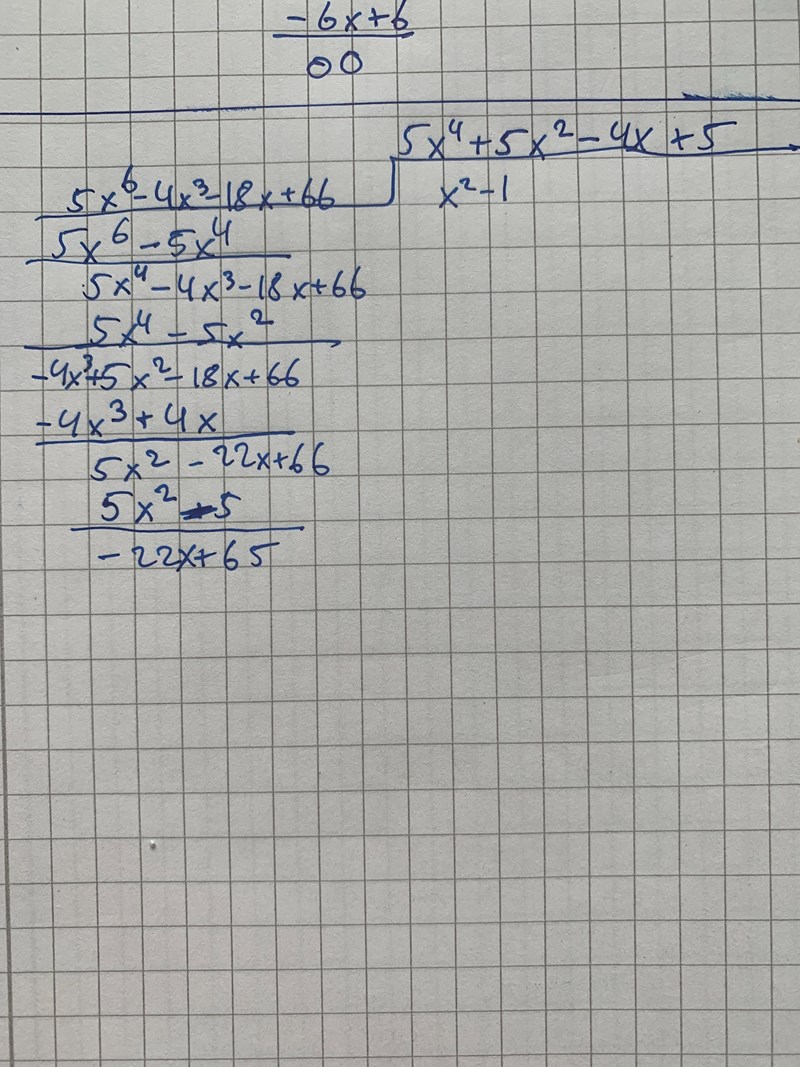 -6x+6
00
5x⁴+5x²-4x+5
5x⁶-4x³-18x+66
x²-1
5x⁶-5x⁴
5x⁴-4x³-18x+66
5x⁴-5x²
-4x³+5x²-18x+66
-4x³+4x
5x²-22x+66
5x²-5
-22x+65